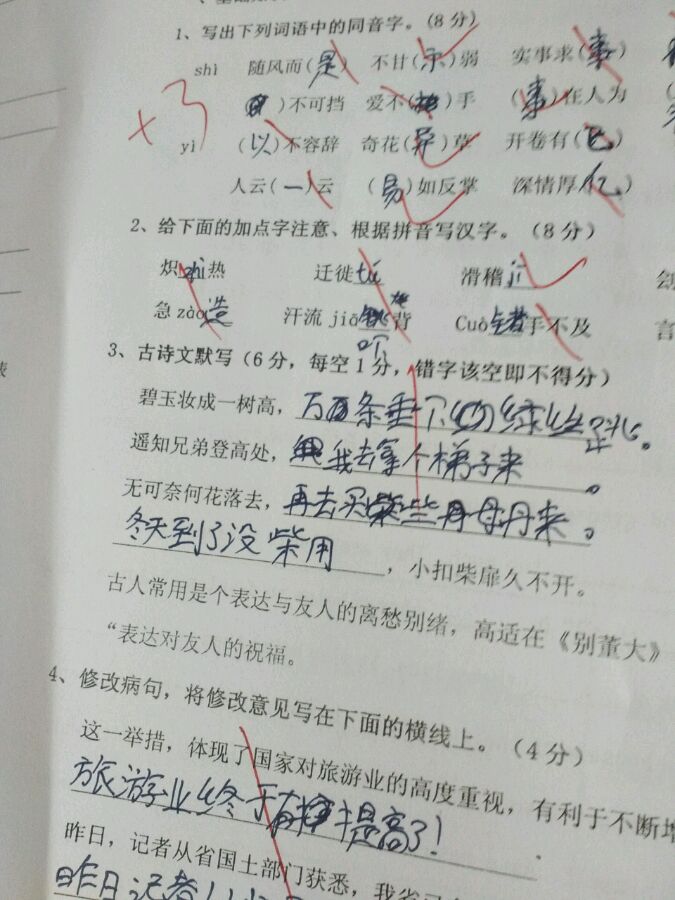 1、写出下列词语中的同音字。(8分)
shì 随风而(是) 不甘(示)弱 实事求(事)
)不可挡 爱不( )手 (事)在人为
+3
yì (以)不容辞 奇花(异)草 开卷有( )
人云(一)云 (易)如反掌 深情厚(亿)
2、给下面的加点字注意、根据拼音写汉字。(8分)
炽zhi热 迁徙tú 滑稽jī
急zào造 汗流jiā 背 Cuò错手不及 言
3、古诗文默写(6分,每空1分,错字该空即不得分)
碧玉妆成一树高,万 条垂下
遥知兄弟登高处,我去拿个梯子来。
无可奈何花落去,再去买些 丹来。
冬天到了没柴用,小扣柴扉久不开。
古人常用是个表达与友人的离愁别绪,高适在《别董大》
“表达对友人的祝福。
4、修改病句,将修改意见写在下面的横线上。(4分)
这一举措,体现了国家对旅游业的高度重视,有利于不断增
旅游业终于有 提高了!
昨日,记者从省国土部门获悉,我省
昨日记者